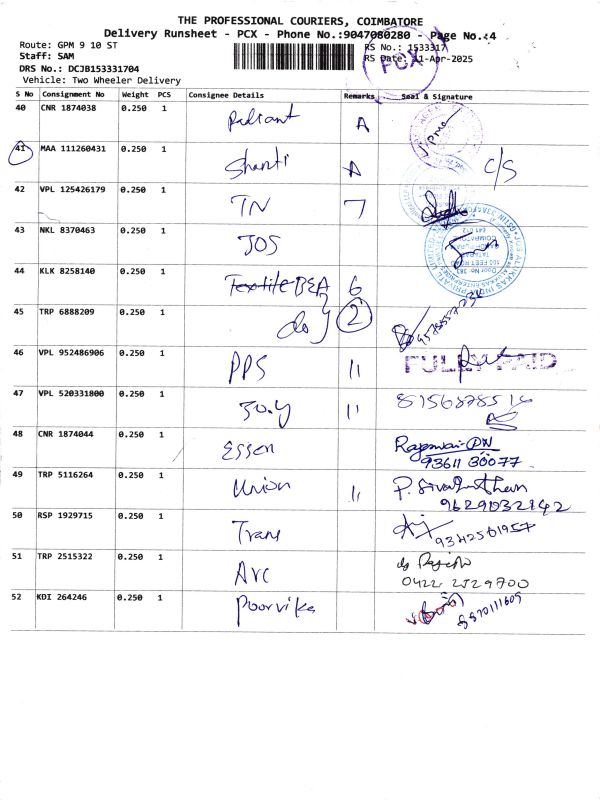 THE PROFESSIONAL COURIERS, COIMBATORE
Delivery Runsheet - PCX - Phone No.:9047080280 - Page No.:4
Route: GPM 9 10 ST RS No.: 1533317
Staff: SAM RS Date: 11-Apr-2025
DRS No.: DCJB153331704
Vehicle: Two Wheeler Delivery
PCX
S No Consignment No Weight PCS Consignee Details Remarks Seal & Signature
40 CNR 1874038 0.250 1 Radiant A
41 MAA 111260431 0.250 1 Shanti A C/S
42 VPL 125426179 0.250 1 TN 7
43 NKL 8370463 0.250 1 JOS
44 KLK 8258140 0.250 1 Textile BEA 6
45 TRP 6888209 0.250 1 do 2
46 VPL 952486906 0.250 1 PPS 11 FULLY PAID
47 VPL 520331800 0.250 1 Jo.y 11
48 CNR 1874044 0.250 1 Essen 93611 30077
49 TRP 5116264 0.250 1 Union 11 9629032142
50 RSP 1929715 0.250 1 Trans 9342501957
51 TRP 2515322 0.250 1 Arc 0422 2529700
52 KDI 264246 0.250 1 Poorvika